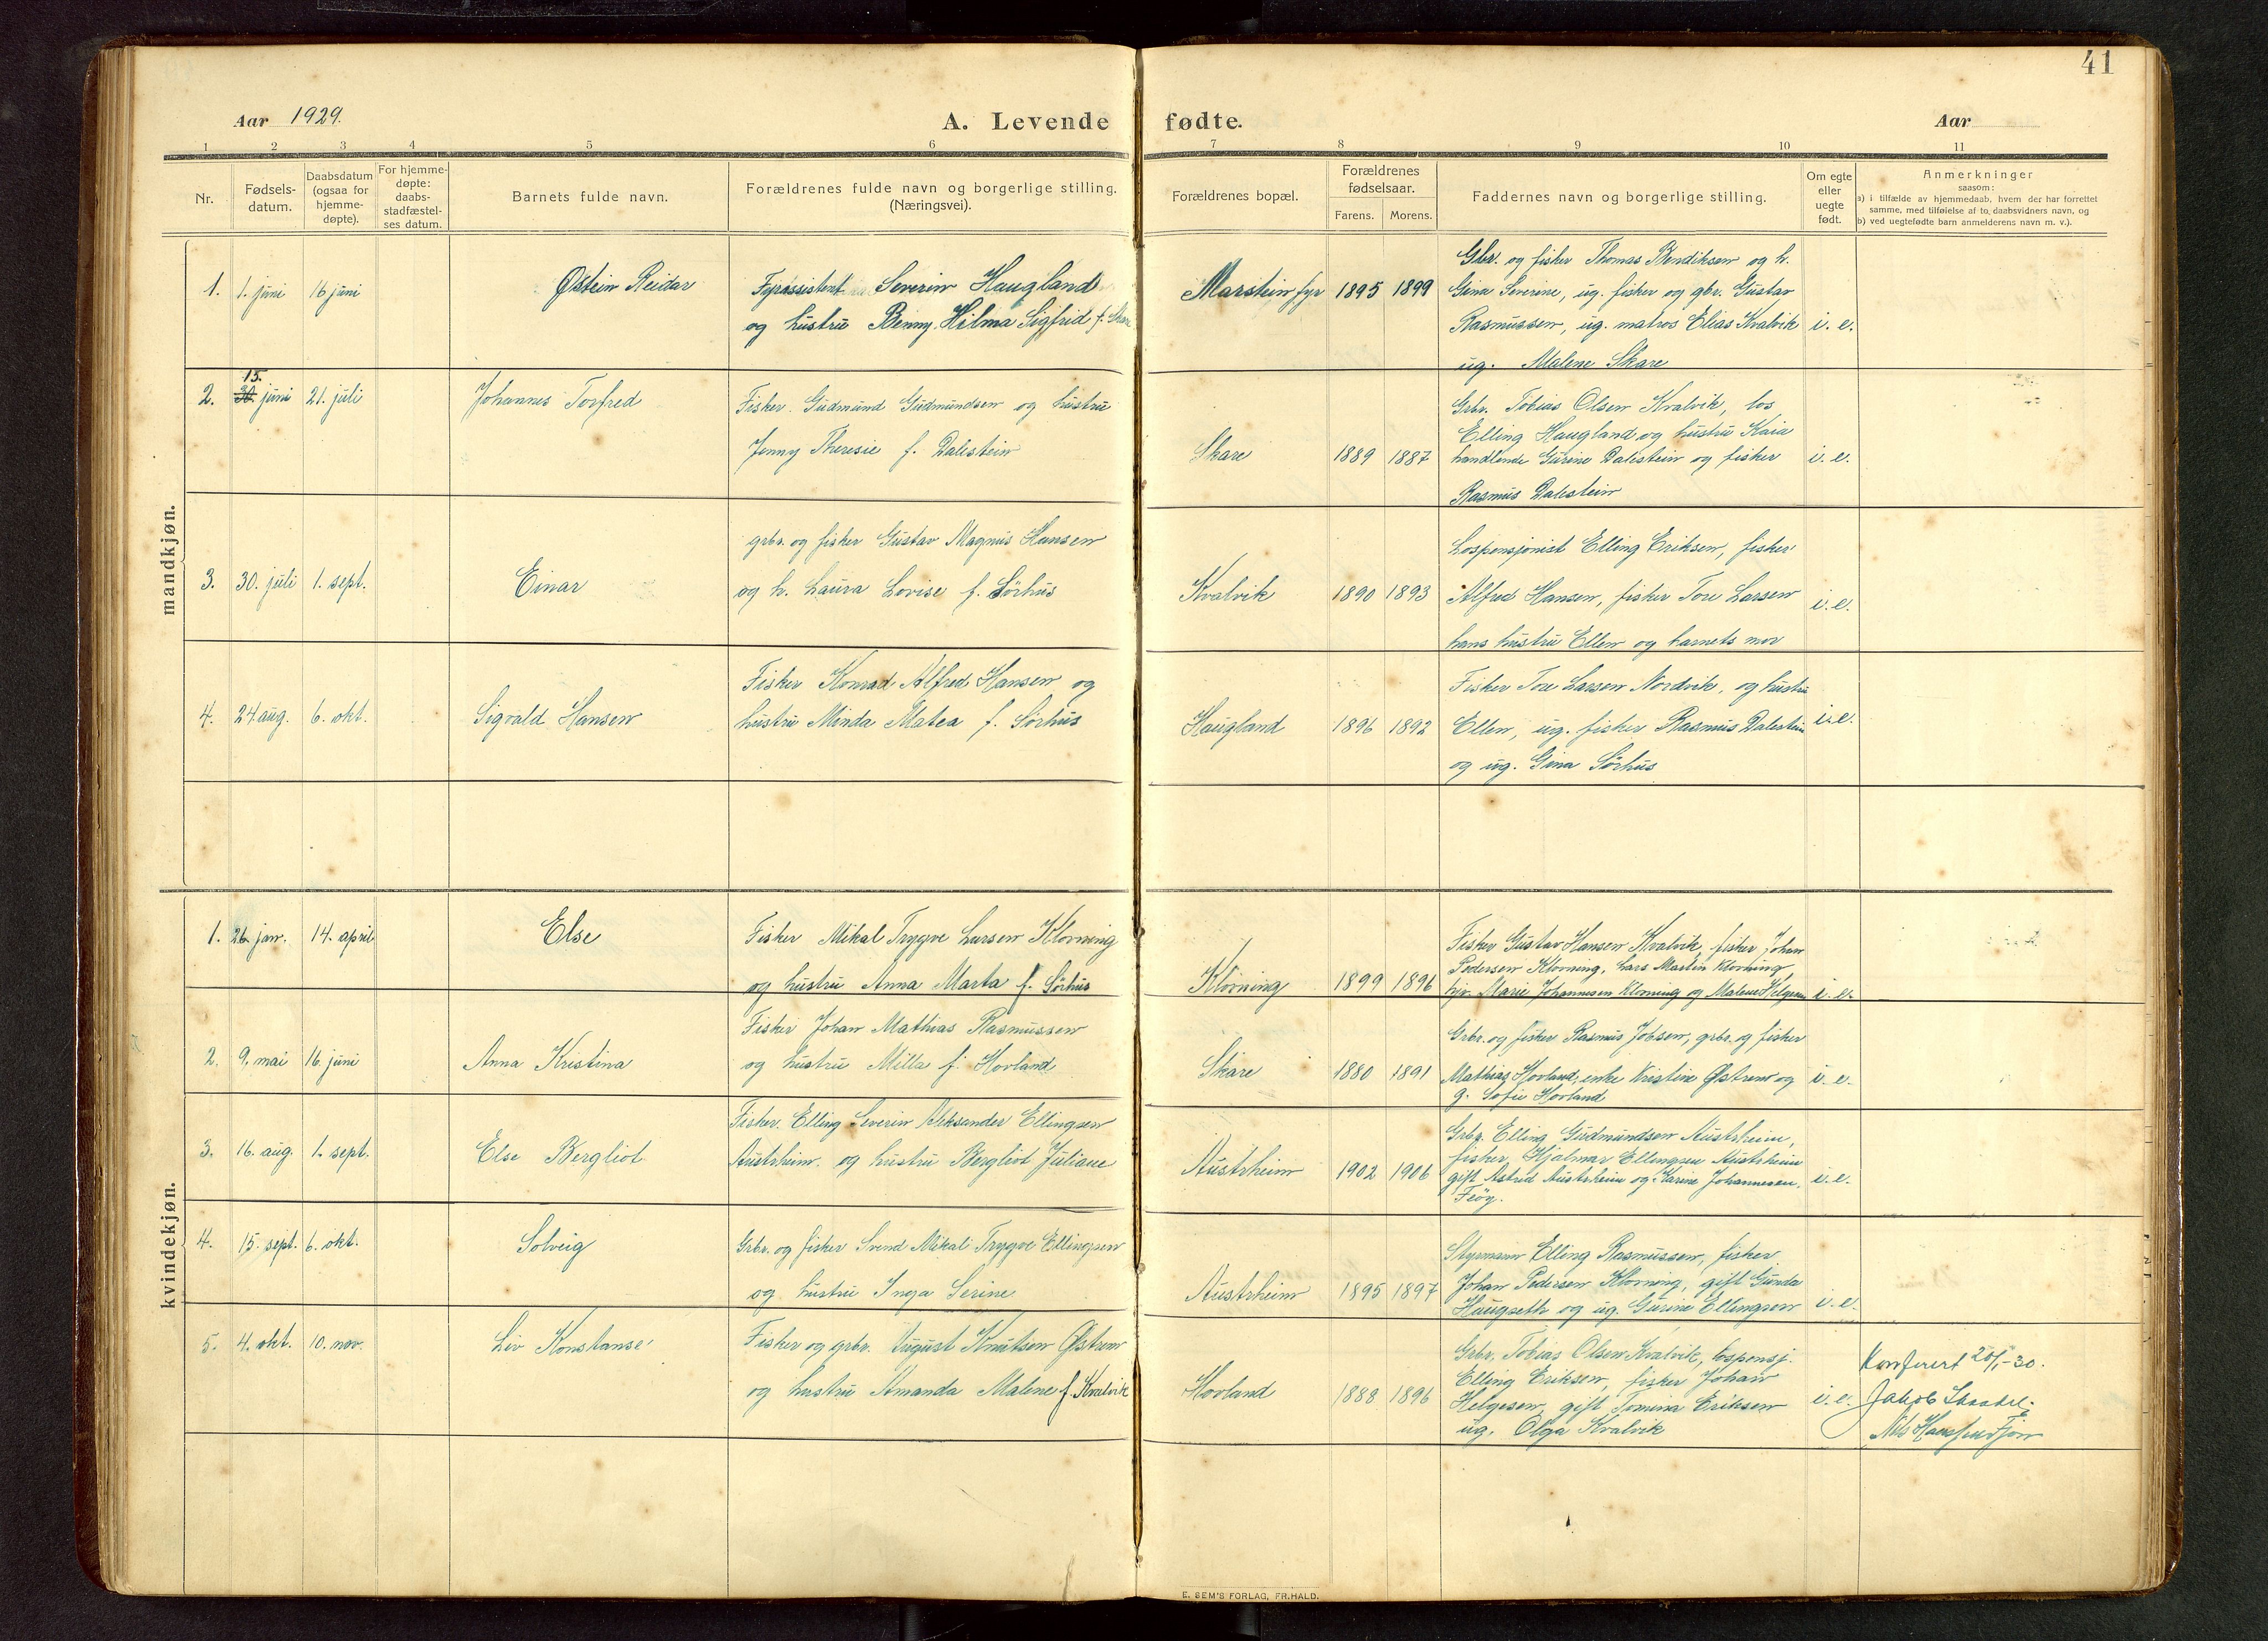 41
Aar 1929.
A. Levende fødte.
Aar
1 2 3 4 5 6 7 8 9 10 11
Nr.
Fødsels-
datum.
Daabsdatum
(ogsaa for
hjemme-
døpte).
For hjemme-
døpte:
daabs-
stadfæstel-
ses datum.
Barnets fulde navn.
Forældrenes fulde navn og borgerlige stilling.
(Næringsvei).
Forældrenes bopæl.
Forældrenes
fødselsaar.
Farens. Morens.
Faddernes navn og borgerlige stilling.
Om egte
eller
uegte
født.
Anmerkninger
saasom:
a) i tilfælde av hjemmedaab, hvem der har forrettet
samme, med tilføielse af to daabsvidners navn, og
b) ved uegtefødte barn anmelderens navn m. v.).
mandkjøn.
1. 1. juni 16 juni Østein Reidar
Fyrassistent Severin Haugland
og hustru Benny Hilma Sigfrid f. Skare
Marstein fyr 1895 1899
Gbr. og fisker Thomas Bendiksen og h.
Gina Severine, ug. fisker og gbr. Gustav
Rasmussen, ug. matros Elias Kvalvik i. e.
ug. Malene Skare
2. 30. 15. juni 21. juli Johannes Torfred
Fisker Gudmund Gudmundsen og hustru
Jenny Theresie f. Dalestein
Skare 1889 1887
Grbr. Tobias Olsen Kvalvik, los
Elling Haugland og hustru Kaia
handlende Gurine Dalestein og fisker i. e.
Rasmus Dalestein
3. 30. juli 1. sept. Einar
grbr. og fisker Gustav Magnus Hansen
og h. Laura Lovise f. Sörhus
Kvalvik 1890 1893
Lospensjonist Elling Eriksen, fisker
Alfred Hansen, fisker Tore Larsen i. e.
hans hustru Ellen og barnets mor
4. 24 aug. 6. okt. Sigvald Hansen
Fisker Konrad Alfred Hansen og
hustru Minda Matea f. Sörhus
Haugland 1896 1892
Fisker Tore Larsen Nordvik, og hustru
Ellen, ug. fisker Rasmus Dalestein i. e.
og ug. Gina Sörhus
kvindekjøn.
1. 26. jan. 14. april Else
Fisker Mikal Trygve Larsen Klovning
og hustru Anna Marta f. Sörhus
Klovning 1899 1896
Fisker Gustav Hansen Kvalvik, fisker Johan
Pedersen Klovning, Lars Martin Klovning,
Marie Johannesen Klovning og Malene Helgesen i. e.
2. 9. mai 16 juni Anna Kristina
Fisker Johan Mathias Rasmussen
og hustru Milla f. Hovland
Skare 1880 1891
Grbr. og fisker Rasmus Jobsen, grbr. og fisker
Mathias Hovland, enke Kristine Østrem og i. e.
g. Sofie Hovland
3. 16. aug. 1. sept. Else Bergliot
Fisker Elling Severin Aleksander Ellingsen
Austrheim og hustru Bergliot Juliane
Austrheim 1902 1906
Grbr. Elling Gudmundsen Austrheim,
fisker Hjalmar Ellingsen Austrheim
gift Astrid Austrheim og Karine Johannesen, i. e.
Feöy.
4. 15. sept. 6. okt. Solveig
Grbr. og fisker Svend Mikal Trygve Ellingsen
og hustru Inga Serine
Austrheim 1895 1897
Styrmann Elling Rasmussen, fisker
Johan Pedersen Klovning, gift Gunda
Haugseth og ug. Gurine Ellingsen i. e.
5. 4. okt. 10. nov. Liv Konstanse
Fisker og grbr. August Knutsen Østrem
og hustru Amanda Malene f. Kvalvik
Hovland 1888 1896
Grbr. Tobias Olsen Kvalvik, lospensj.
Elling Eriksen, fisker Johan
Helgesen, gift Tomina Eriksen i. e.
ug. Olga Kvalvik
Konferert 20/1-30.
Jakob
Nils
E. SEM'S FORLAG, FR.HALD.